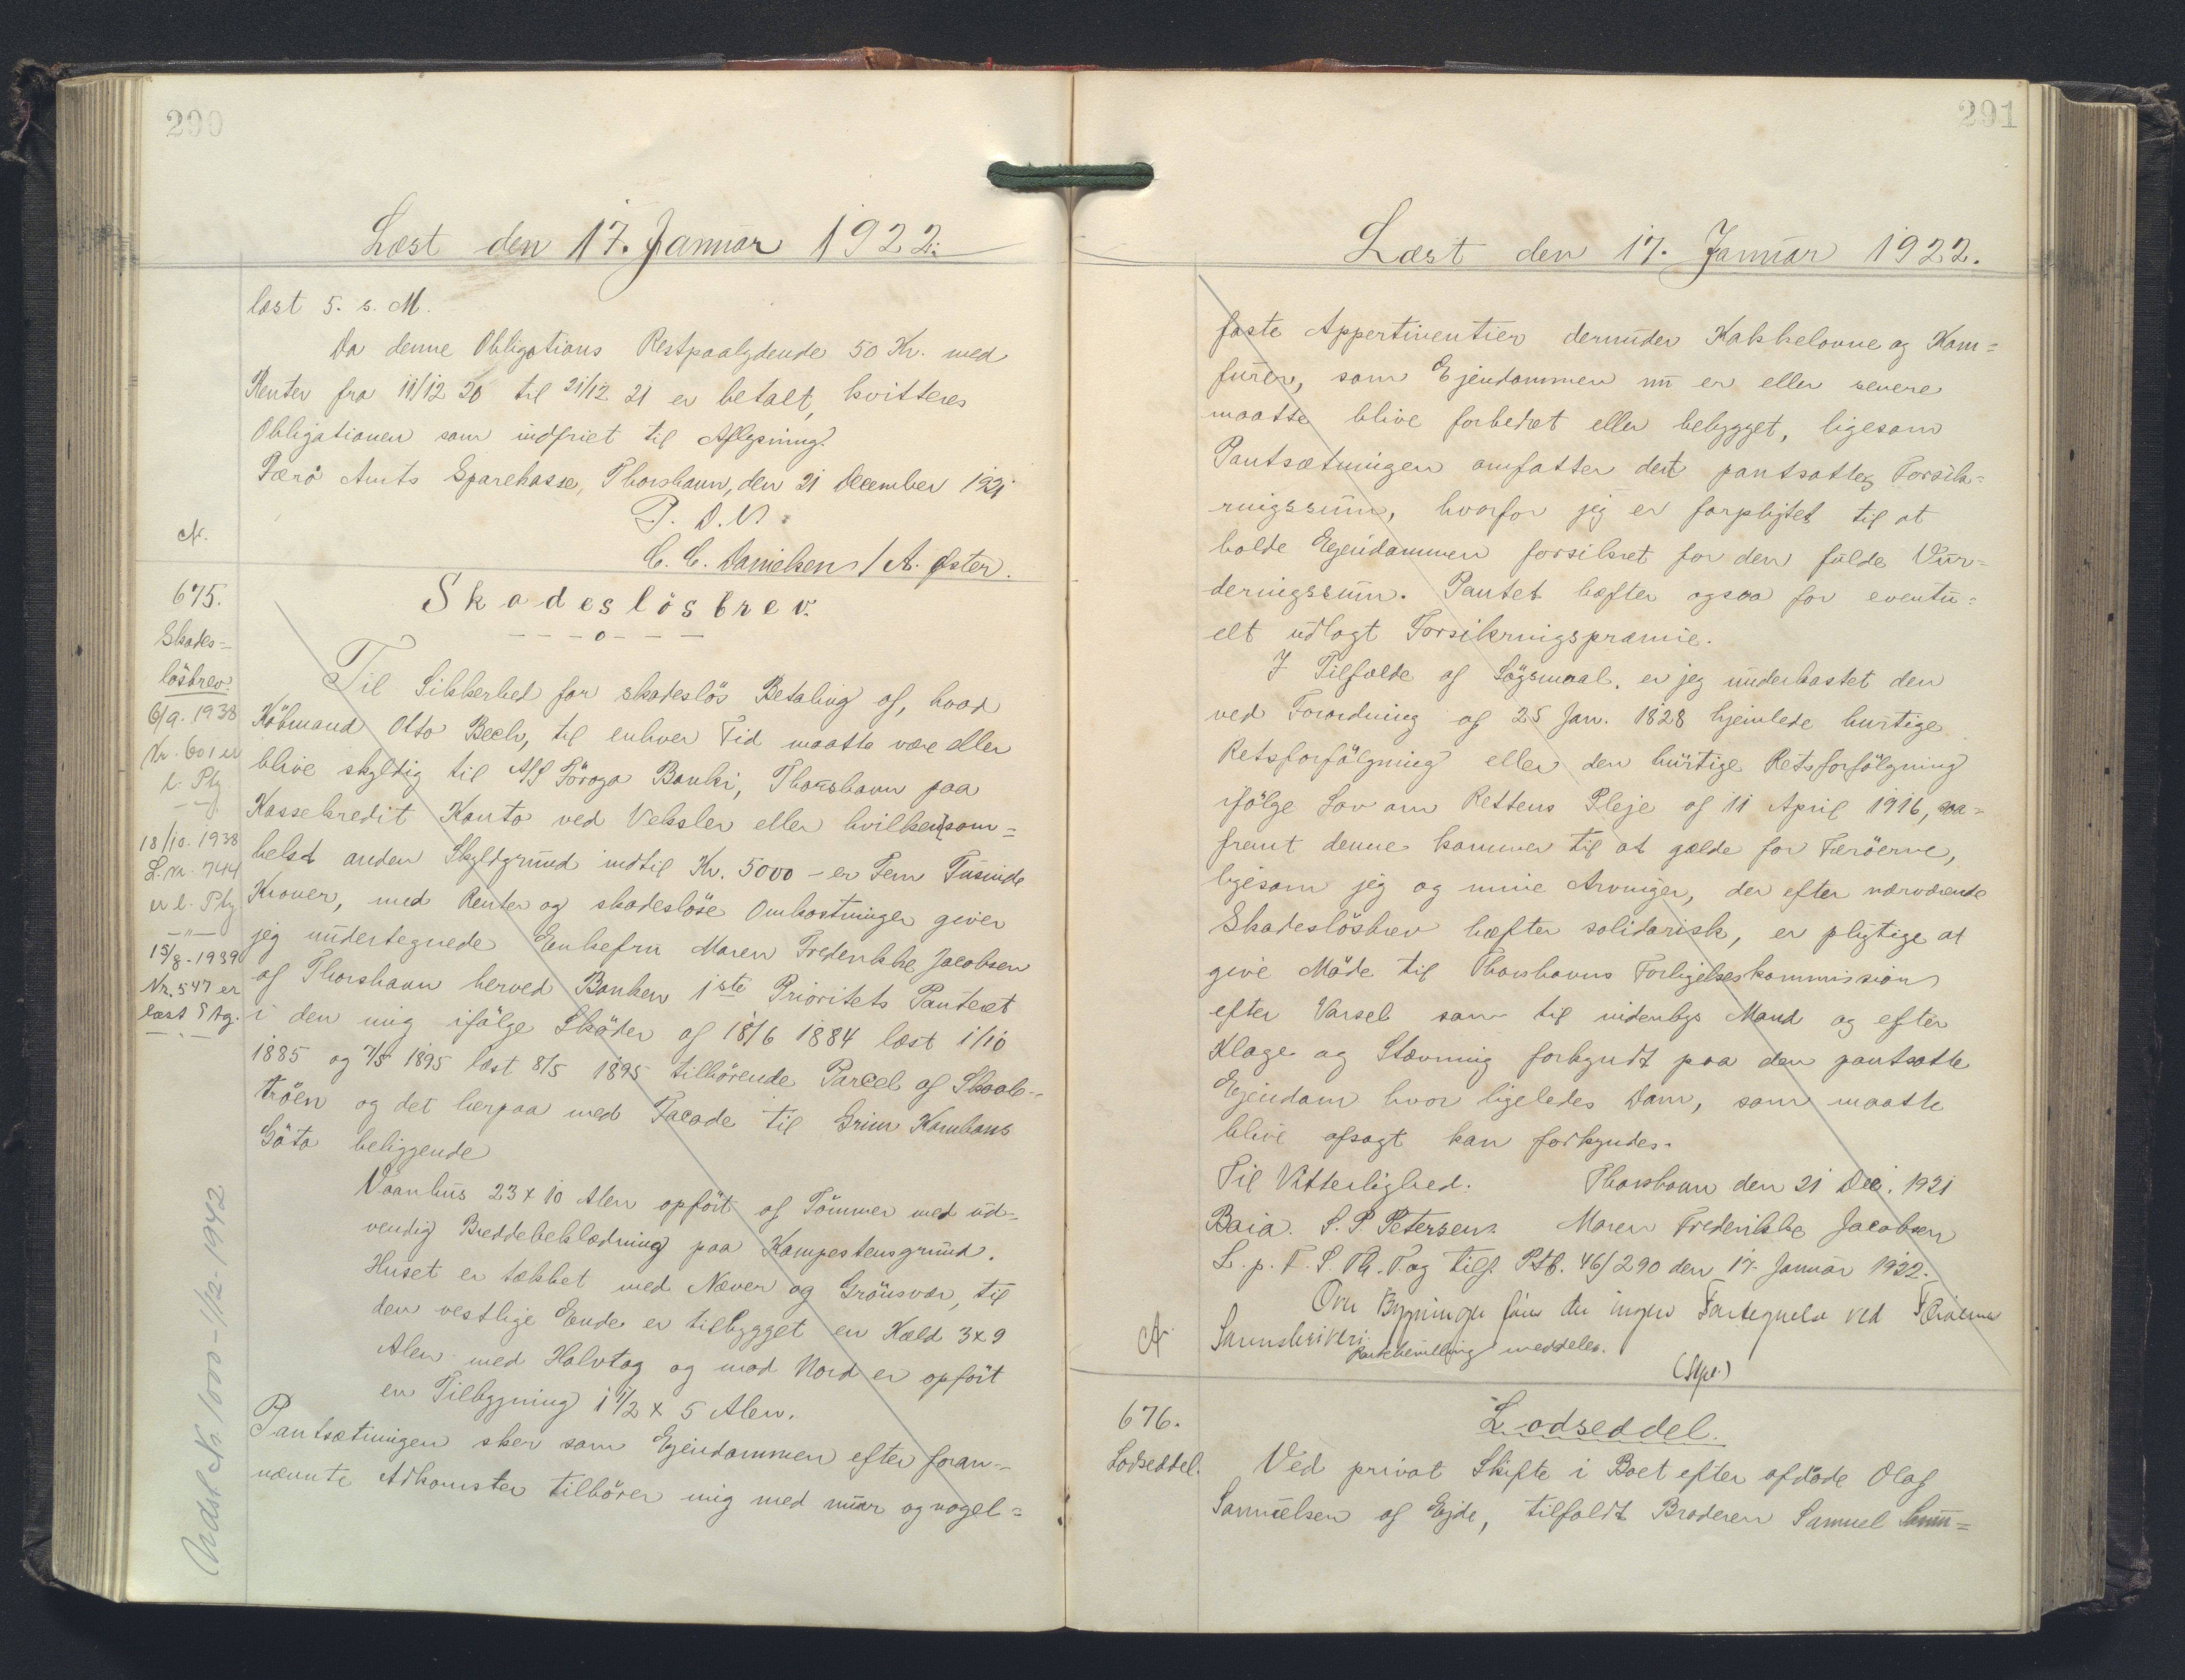 290
Læst den 17. Januar 1922.
læst 5. s. M.
Da denne Obligations Restpaalydende 50 Kr. med
Renter fra 11/12 20 til 21/12 21 er betalt, kvitteres
Obligationen som indfriet til Aflysning.
Færö Amts Sparekasse, Thorshavn, den 21 December 1921
P. D. V.
C. C. Danielsen / A. Øster.
A.
675.
Skades-
lösbrev.
6/9. 1938
Nr. 601 er
l. Ptg
18/10. 1938
L. nr. 744
er l. Ptg
15/8-1939
Nr. 547 er
læst Ptg.
Skadeslösbrev.
Til Sikkerhed for skadeslös Betaling af, hvad
Köbmand Otto Bech, til enhver Tid maatte være eller
blive skyldig til A/S Föroya Banki, Thorshavn paa
Kassekredit Konto ved Veksler eller hvilkensom-
helst anden Skyldgrund indtil Kr. 5000 - er Fem Tusinde
Kroner, med Renter og skadeslöse Omkostninger giver
jeg undertegnede Enkefru Maren Frederikke Jacobsen
af Thorshavn herved Banken 1ste Prioritets Panteret
i den mig ifölge Sköder af 18/6 1884 læst 1/10
1885 og 7/5 1895 læst 8/5 1895 tilhörende Parcel af Skaale-
tröen og det herpaa med Facade til Grim Kambans
Göta beliggende
Vaanhus 23 x 10 Alen opfört af Tömmer med ud-
vendig Breddebeklædning paa Kampestensgrund.
Huset er tækket med Næver og Grönsvær, til
den vestlige Ende er tilbygget en Kæld 3 x 9
Alen med Halvtag og mod Nord er opfört
en Tilbygning 1 1/2 x 5 Alen.
Pantsætningen sker som Ejendommen efter foran-
nævnte Adkomster tilhörer mig med mur og nagel-
Kr. 1000 - 1/12-1942
291
Læst den 17. Januar 1922.
faste Appertinentier derunder Kakkelovne og Kom-
furer, som Ejendommen nu er eller senere
maatte blive forbedret eller bebygget, ligesom
Pantsætningen omfatter det pantsattes Forsik-
ringssum, hvorfor jeg er forpligtet til at
holde Ejendommen forsikret for den fulde Vur-
deringssum. Pantet hæfter ogsaa for eventu-
elt udlagt Forsikringspræmie.
I Tilfælde af Sögsmaal, er jeg underkastet den
ved Forordning af 25 Jan. 1828 hjemlede hurtige
Retsforfölgning eller den hurtige Retsforfölgning
ifölge Lov om Rettens Pleje af 11 April 1916, saa-
fremt denne kommer til at gælde for Færöerne,
ligesom jeg og mine Arvinger, der efter nærværende
Skadeslösbrev hæfter solidarisk, er pligtige at
give Möde til Thorshavns Forligelseskommission
efter Varsel som til indenbys Mand og efter
Klage og Stævning forkyndt paa den pantsatte
Ejendom hvor ligeledes Dom, som maatte
blive afsagt kan forkyndes.
Til Vitterlighed. Thorshavn den 21 Dec. 1921
Baia. S. P. Petersen. Maren Frederikke Jacobsen
L. p. F. S. Th. T. og tilf. Ptb. 46/290 den 17. Januar 1922.
Om Bygninger findes der ingen Fortegnelse ved Færöerne
Sorenskriveri. meddeles.
A.
676.
Lodseddel.
Lodseddel.
Ved privat Skifte i Boet efter afdöde Olaf
Samuelsen af Ejde, tilfaldt Broderen Samuel Samu-